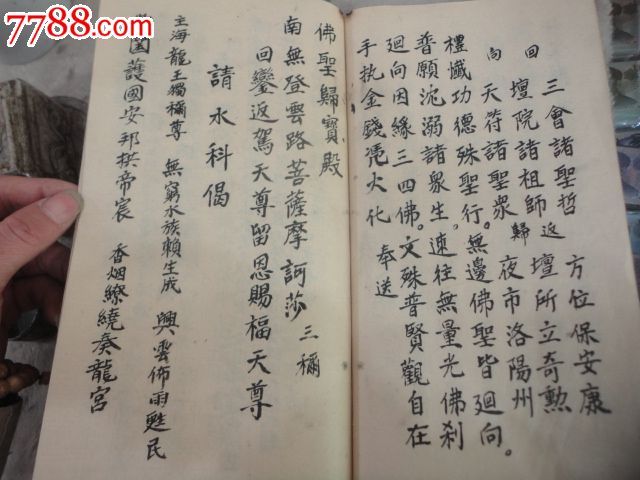 7788.com
三會諸聖哲 方位保安康
回 壇院諸祖師 返 壇所立奇勲
向 天符諸聖衆 歸 夜市洛陽州
禮懴功德殊聖行。無邊佛聖皆廻向。
普願沈溺諸衆生，速往無量光佛刹
廻向因緣三四佛。文殊普賢觀自在
手执金錢凴火化 奉送
佛聖歸寶殿
南無登雲路菩薩摩訶莎 三稱
回鑾返駕天尊 留恩賜福天尊
請水科偈
主海龍王獨稱尊 無窮水族賴生成 興雲佈雨甦民
國護國安邦拱帝宸 香烟繚繞奏龍宮